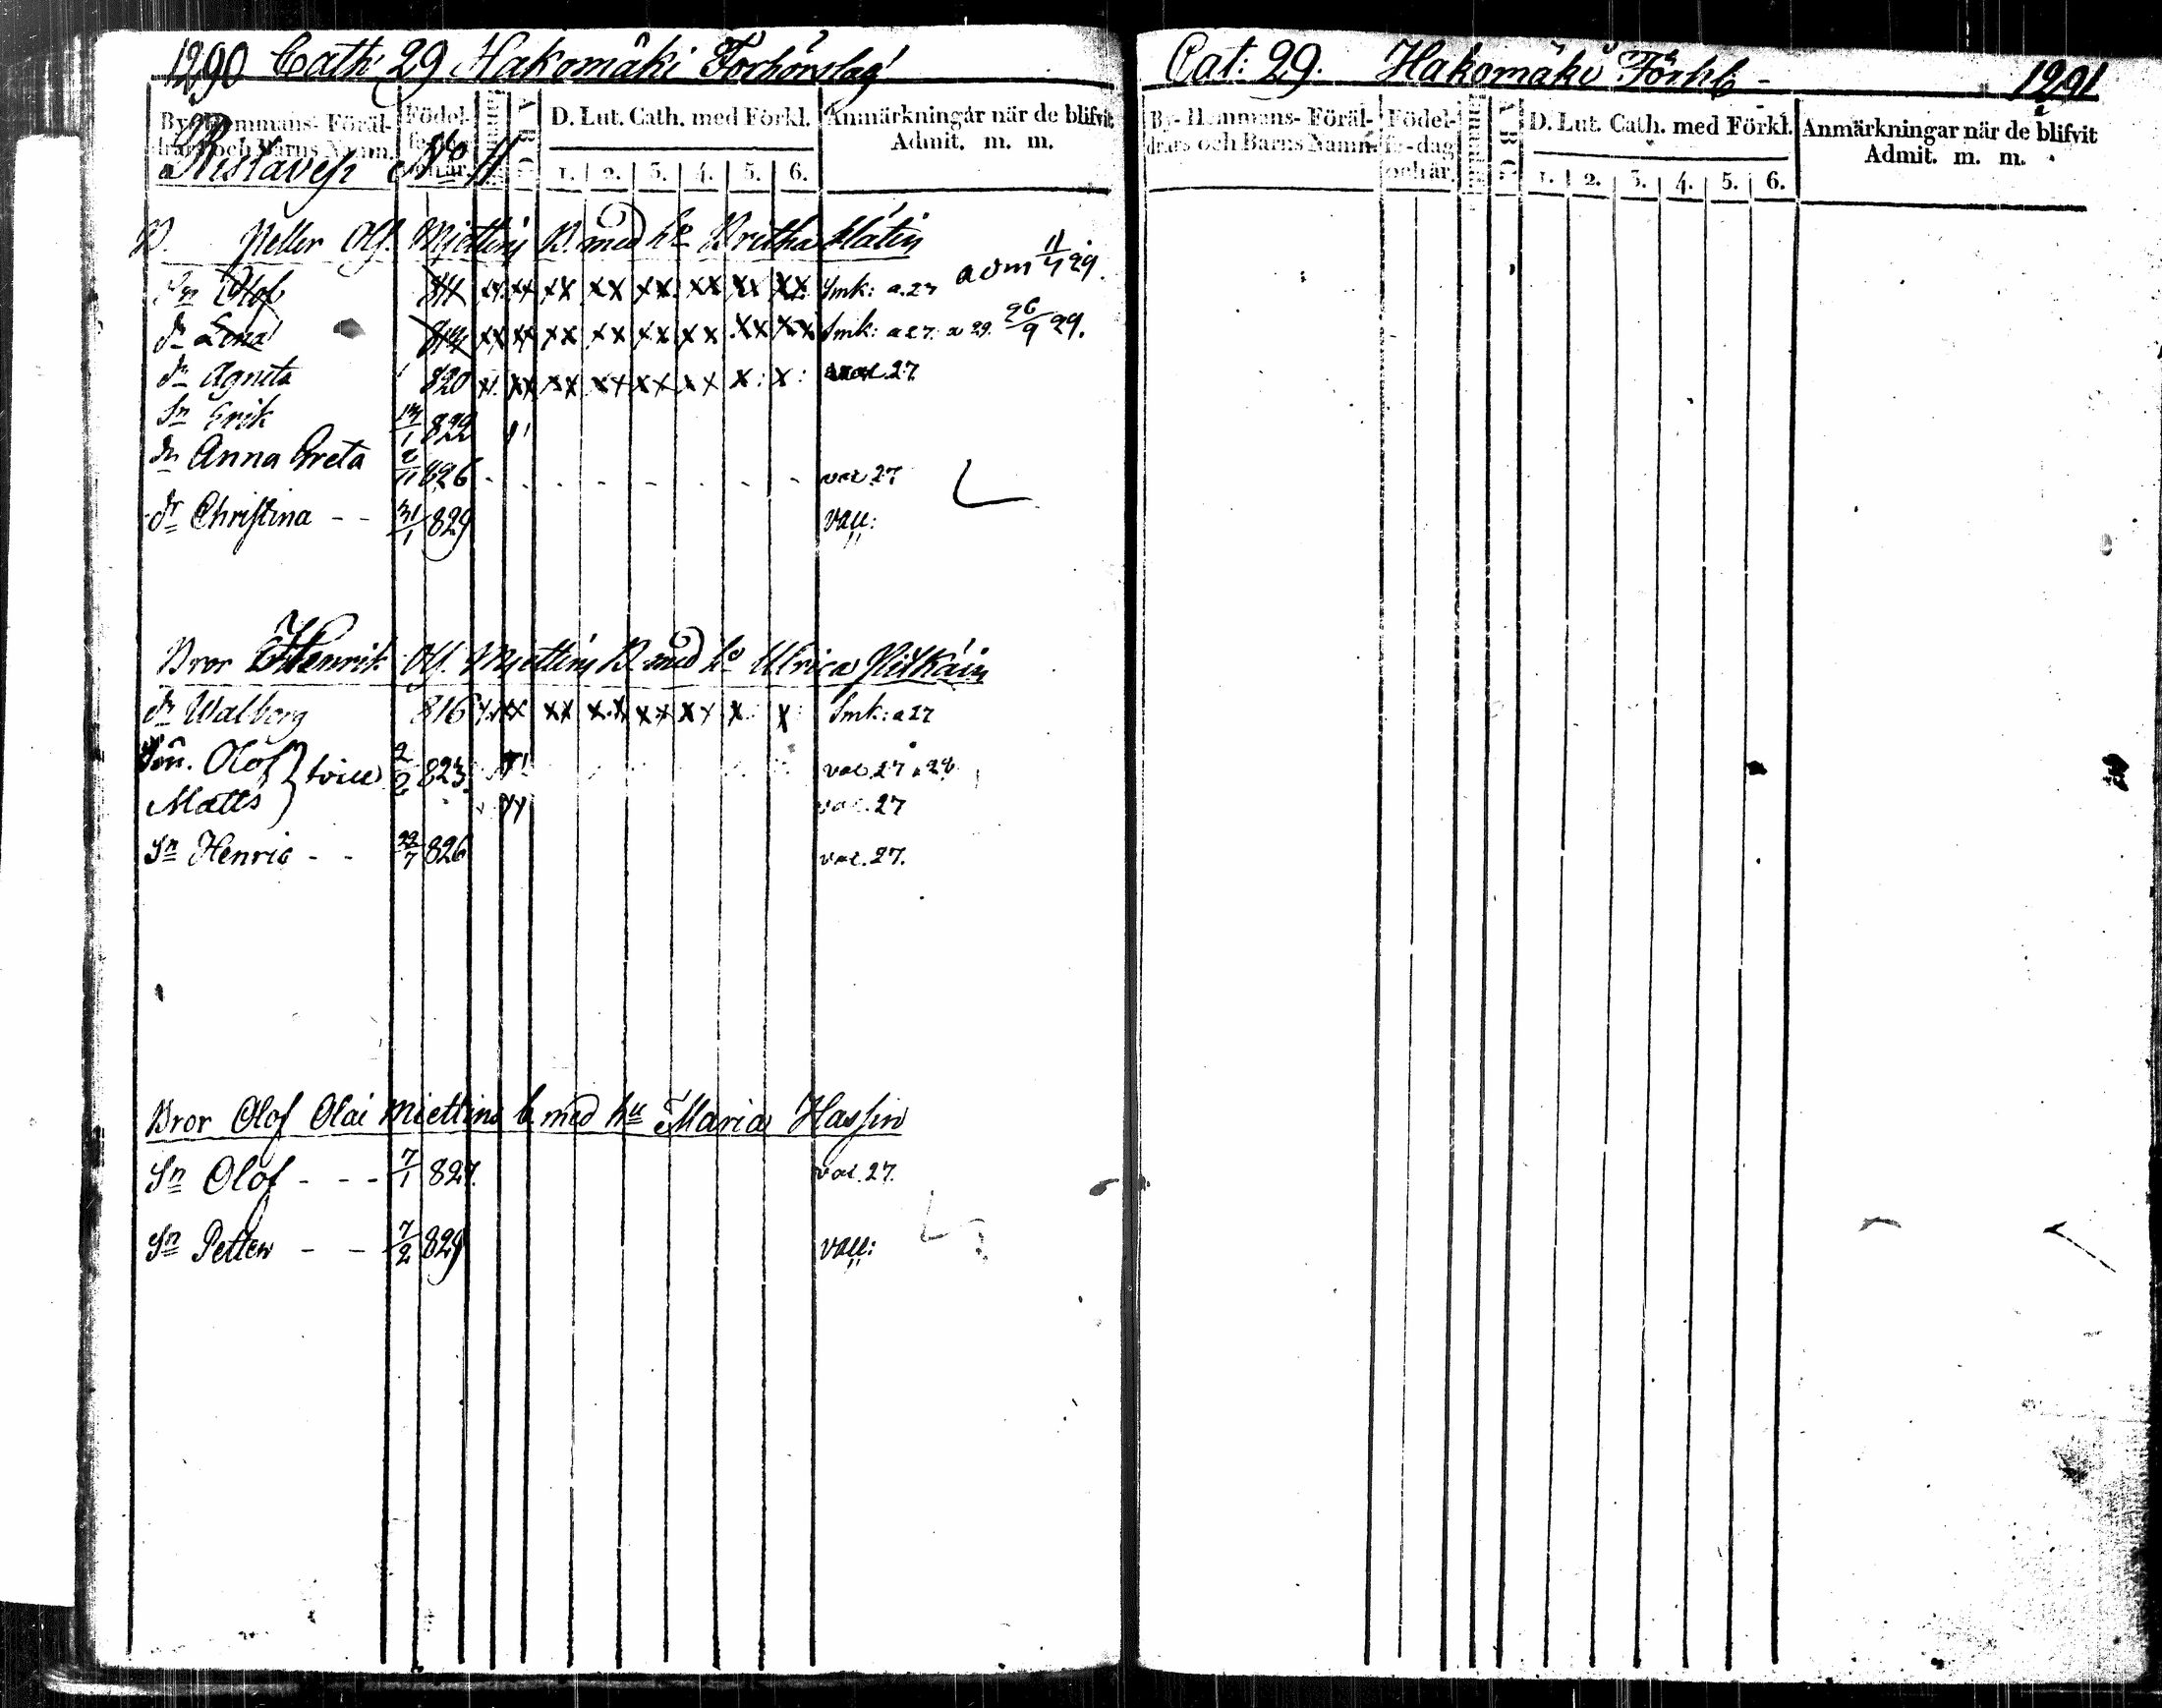 1290 Cath: 29 Hakomäki Förhörslag
By- Hemmans- Föräl-
drars och Barns Namn.
Födel-
och år.
A B C
D. Lut. Cath. med Förkl.
1. 2. 3. 4. 5. 6.
Anmärkningar när de blifvit
Admit. m. m.
Ristavesi No 11
B. Petter Olf. Miettin B. med h. Britha Matin
Sn Olof 811 xx xx xx xx xx xx xx xx Smk: a. 27 adm 29.
dr Lena 814 xx xx xx xx xx xx xx xx Smk: a 27. a 29. 26/9 29.
dr Agneta 820 x. xx xx xx xx xx x: x: 27
Sn Erik 13/1 822
dr Anna Greta 2/11 826 - - - - - - - - vac 27
dr Christina - - 31/1 829 vacc:
Bror Henrik Olf. Miettin B. med h. Ulrica Pitkäin
dr Walborg 816 x. xx xx xx xx xx x. x: Smk: a 27
Sön. Olof } 2/2 823. vac 27, 28
Matts vac. 27
Sn Henric - - 22/7 826 vac. 27.
Bror Olof Olai Miettins b. med hu Maria Hassin
Sn Olof - - - 7/1 827. vac. 27.
Sn Petter - - 7/2 829 vacc:
Cat: 29. Hakomäki Förhl - 1291
By- Hemmans- Föräl-
drars och Barns Namn.
Födel-
se-dag
och år.
A B C
D. Lut. Cath. med Förkl.
1. 2. 3. 4. 5. 6.
Anmärkningar när de blifvit
Admit. m. m.